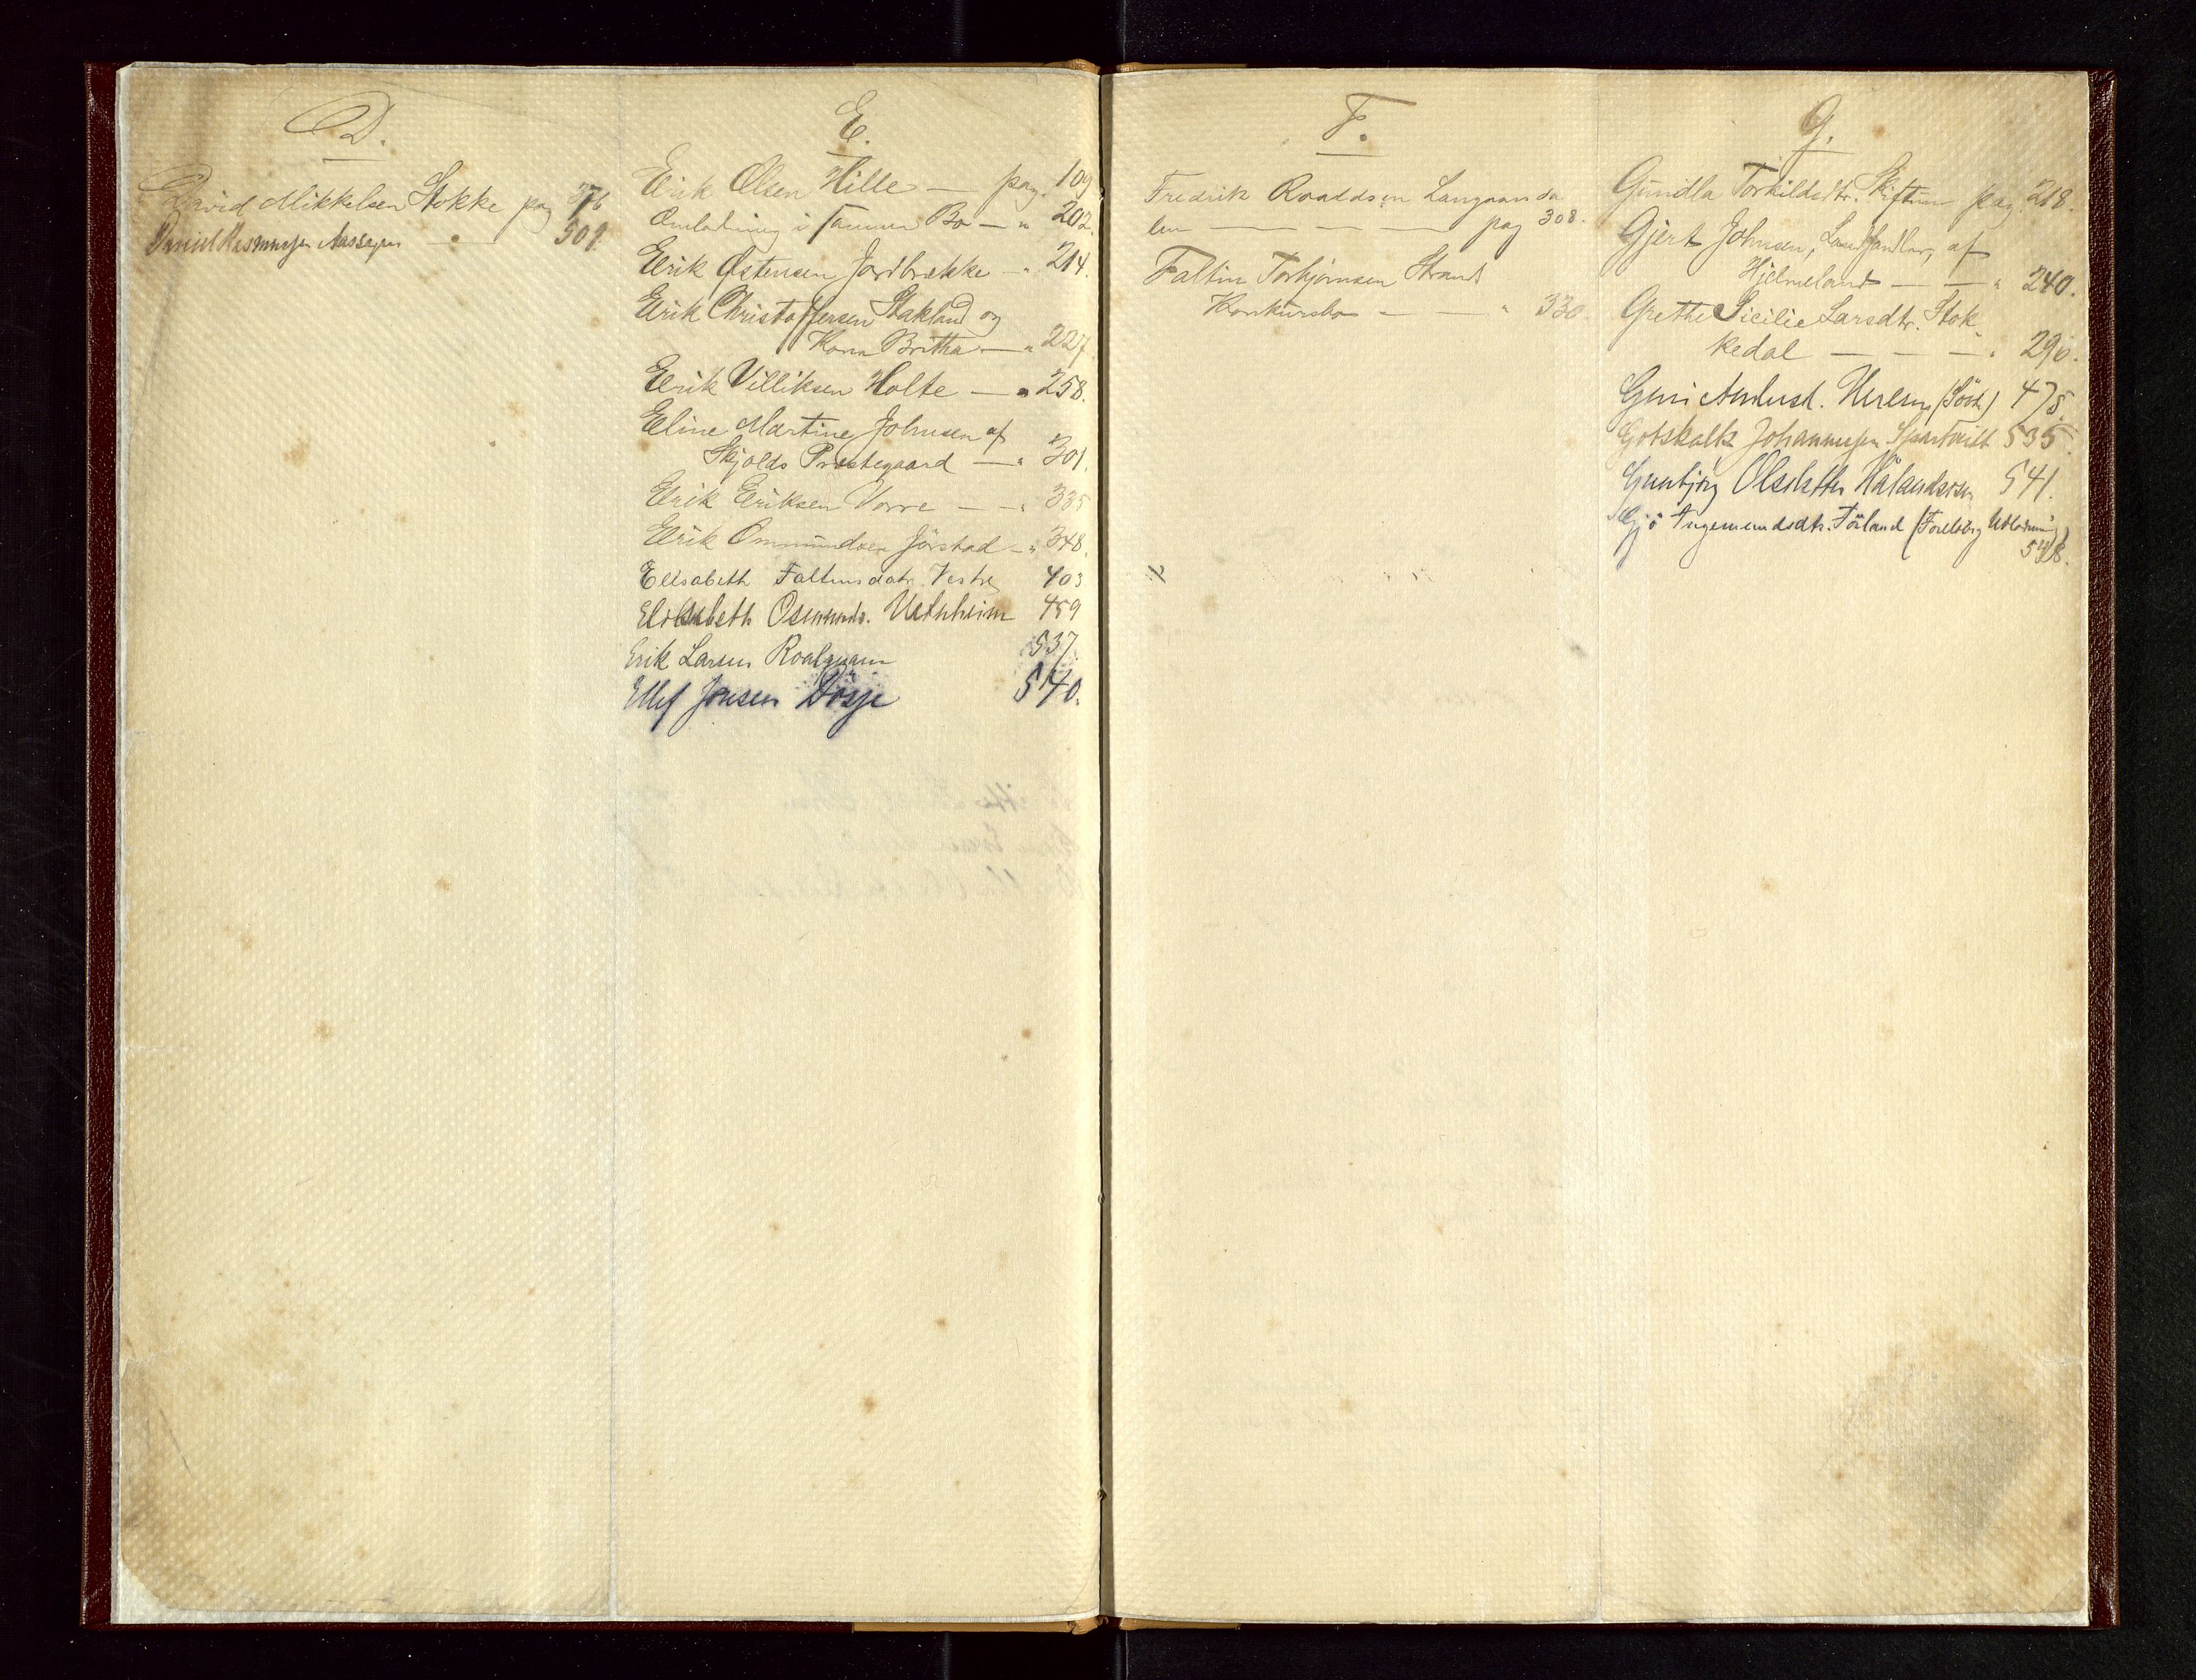 D.
David Mikkelsen Stokke pag 376
Daniel Rasmussen Aassagen " 509.
E.
Eerik Olsen Hille — pag. 109
Omlodning i samme Bo — " 202.
Eerik Østensen Jordbrekke — " 214.
Eerik Christoffersen Stakland og
Kona Britha — " 227
Eerik Villiksen Holte — " 258.
Eline Martine Johnsen af
Skjolds Prestegaard — " 301.
Eerik Eriksen Vorre — — " 335
Eerik Ommundsen Jörstad — " 348.
Elisabeth Faltinsdatr. Vestre 403
Elisabeth Osmunds. 459
Erik Larsen 537.
Ellef Jonsen 540.
F.
Fredrik Roaldsen Langaanda
len — — — — pag 308.
Faltin Torbjörnsen Strand
Konkursbo — — " 330.
G.
Gundla Torkildsdtr. Skiftun pag. 218.
Gjert Johnsen, Landhandler, af
Hjelmeland — — " 240.
Grethe Sicilie Larsdtr. Stok-
kedal — — — " 290.
Guri 475.
Gotskalk Johannesen 535.
Gunbjörg Olsdatter 541.
Gjö Ingemundsdtr. Förland (Foreløbig Udlodning)
548.